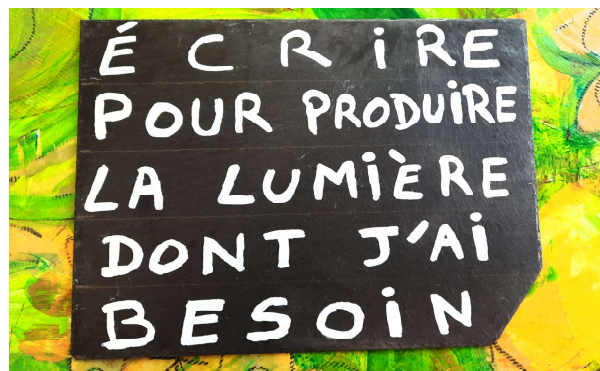 ÉCRiRE
POUR PRODUiRE
LA LUMiÈRE
DONT J'Ai
BESOiN